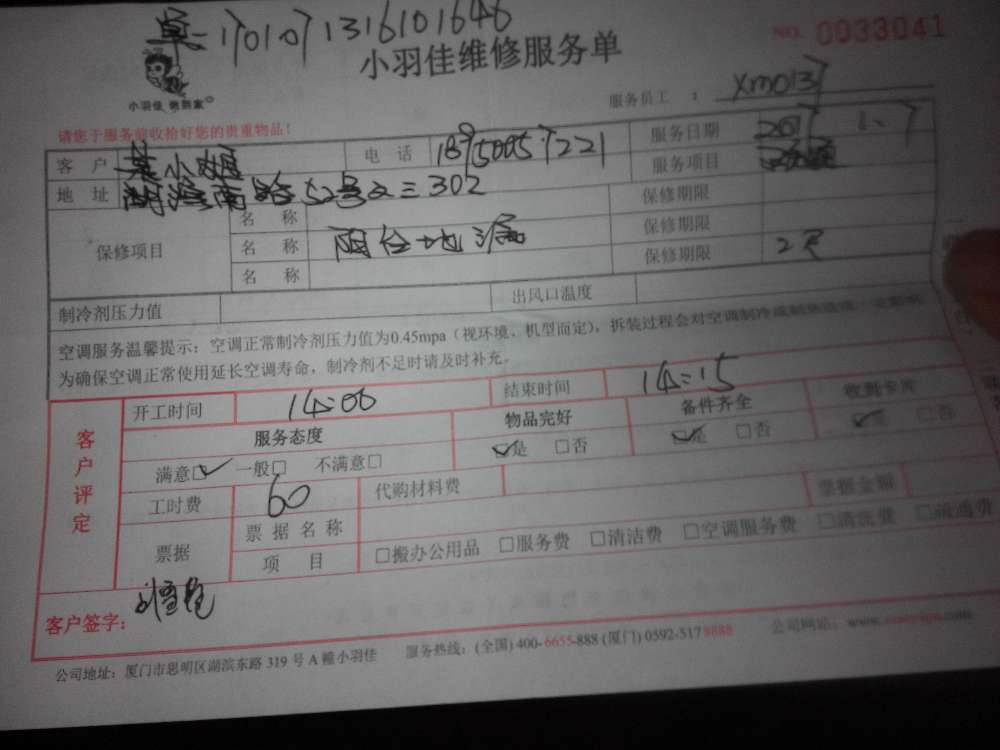 单:1701071316101646
NO. 0033041
小羽佳维修服务单
小羽佳 做到家
服务员工 : xm0137
请您于服务前收拾好您的贵重物品!
客户 小姐 电话 服务日期 2017 1.7
地址 湖滨南路52号之三302 服务项目
保修项目 名称 保修期限
名称 阳台地漏 保修期限
名称 保修期限 2天
制冷剂压力值 出风口温度
空调服务温馨提示:空调正常制冷剂压力值为0.45mpa(视环境、机型而定),拆装过程会对空调制冷或制热造成一定影响
为确保空调正常使用延长空调寿命,制冷剂不足时请及时补充。
客户评定
开工时间 14:00 结束时间 14:15
服务态度 物品完好 备件齐全 收到卡片
满意□✓ 一般□ 不满意□ ☑是 □否 ☑是 □否 ☑是 □否
工时费 60 代购材料费 票据金额
票据 票据名称
项目 □搬办公用品 □服务费 □清洁费 □空调服务费 □清洗费 □疏通费
客户签字:
公司地址:厦门市思明区湖滨东路 319 号 A 幢小羽佳 服务热线:(全国) 400-6655-888 (厦门) 0592-5178888 公司网站:www.xiaoyujia.com